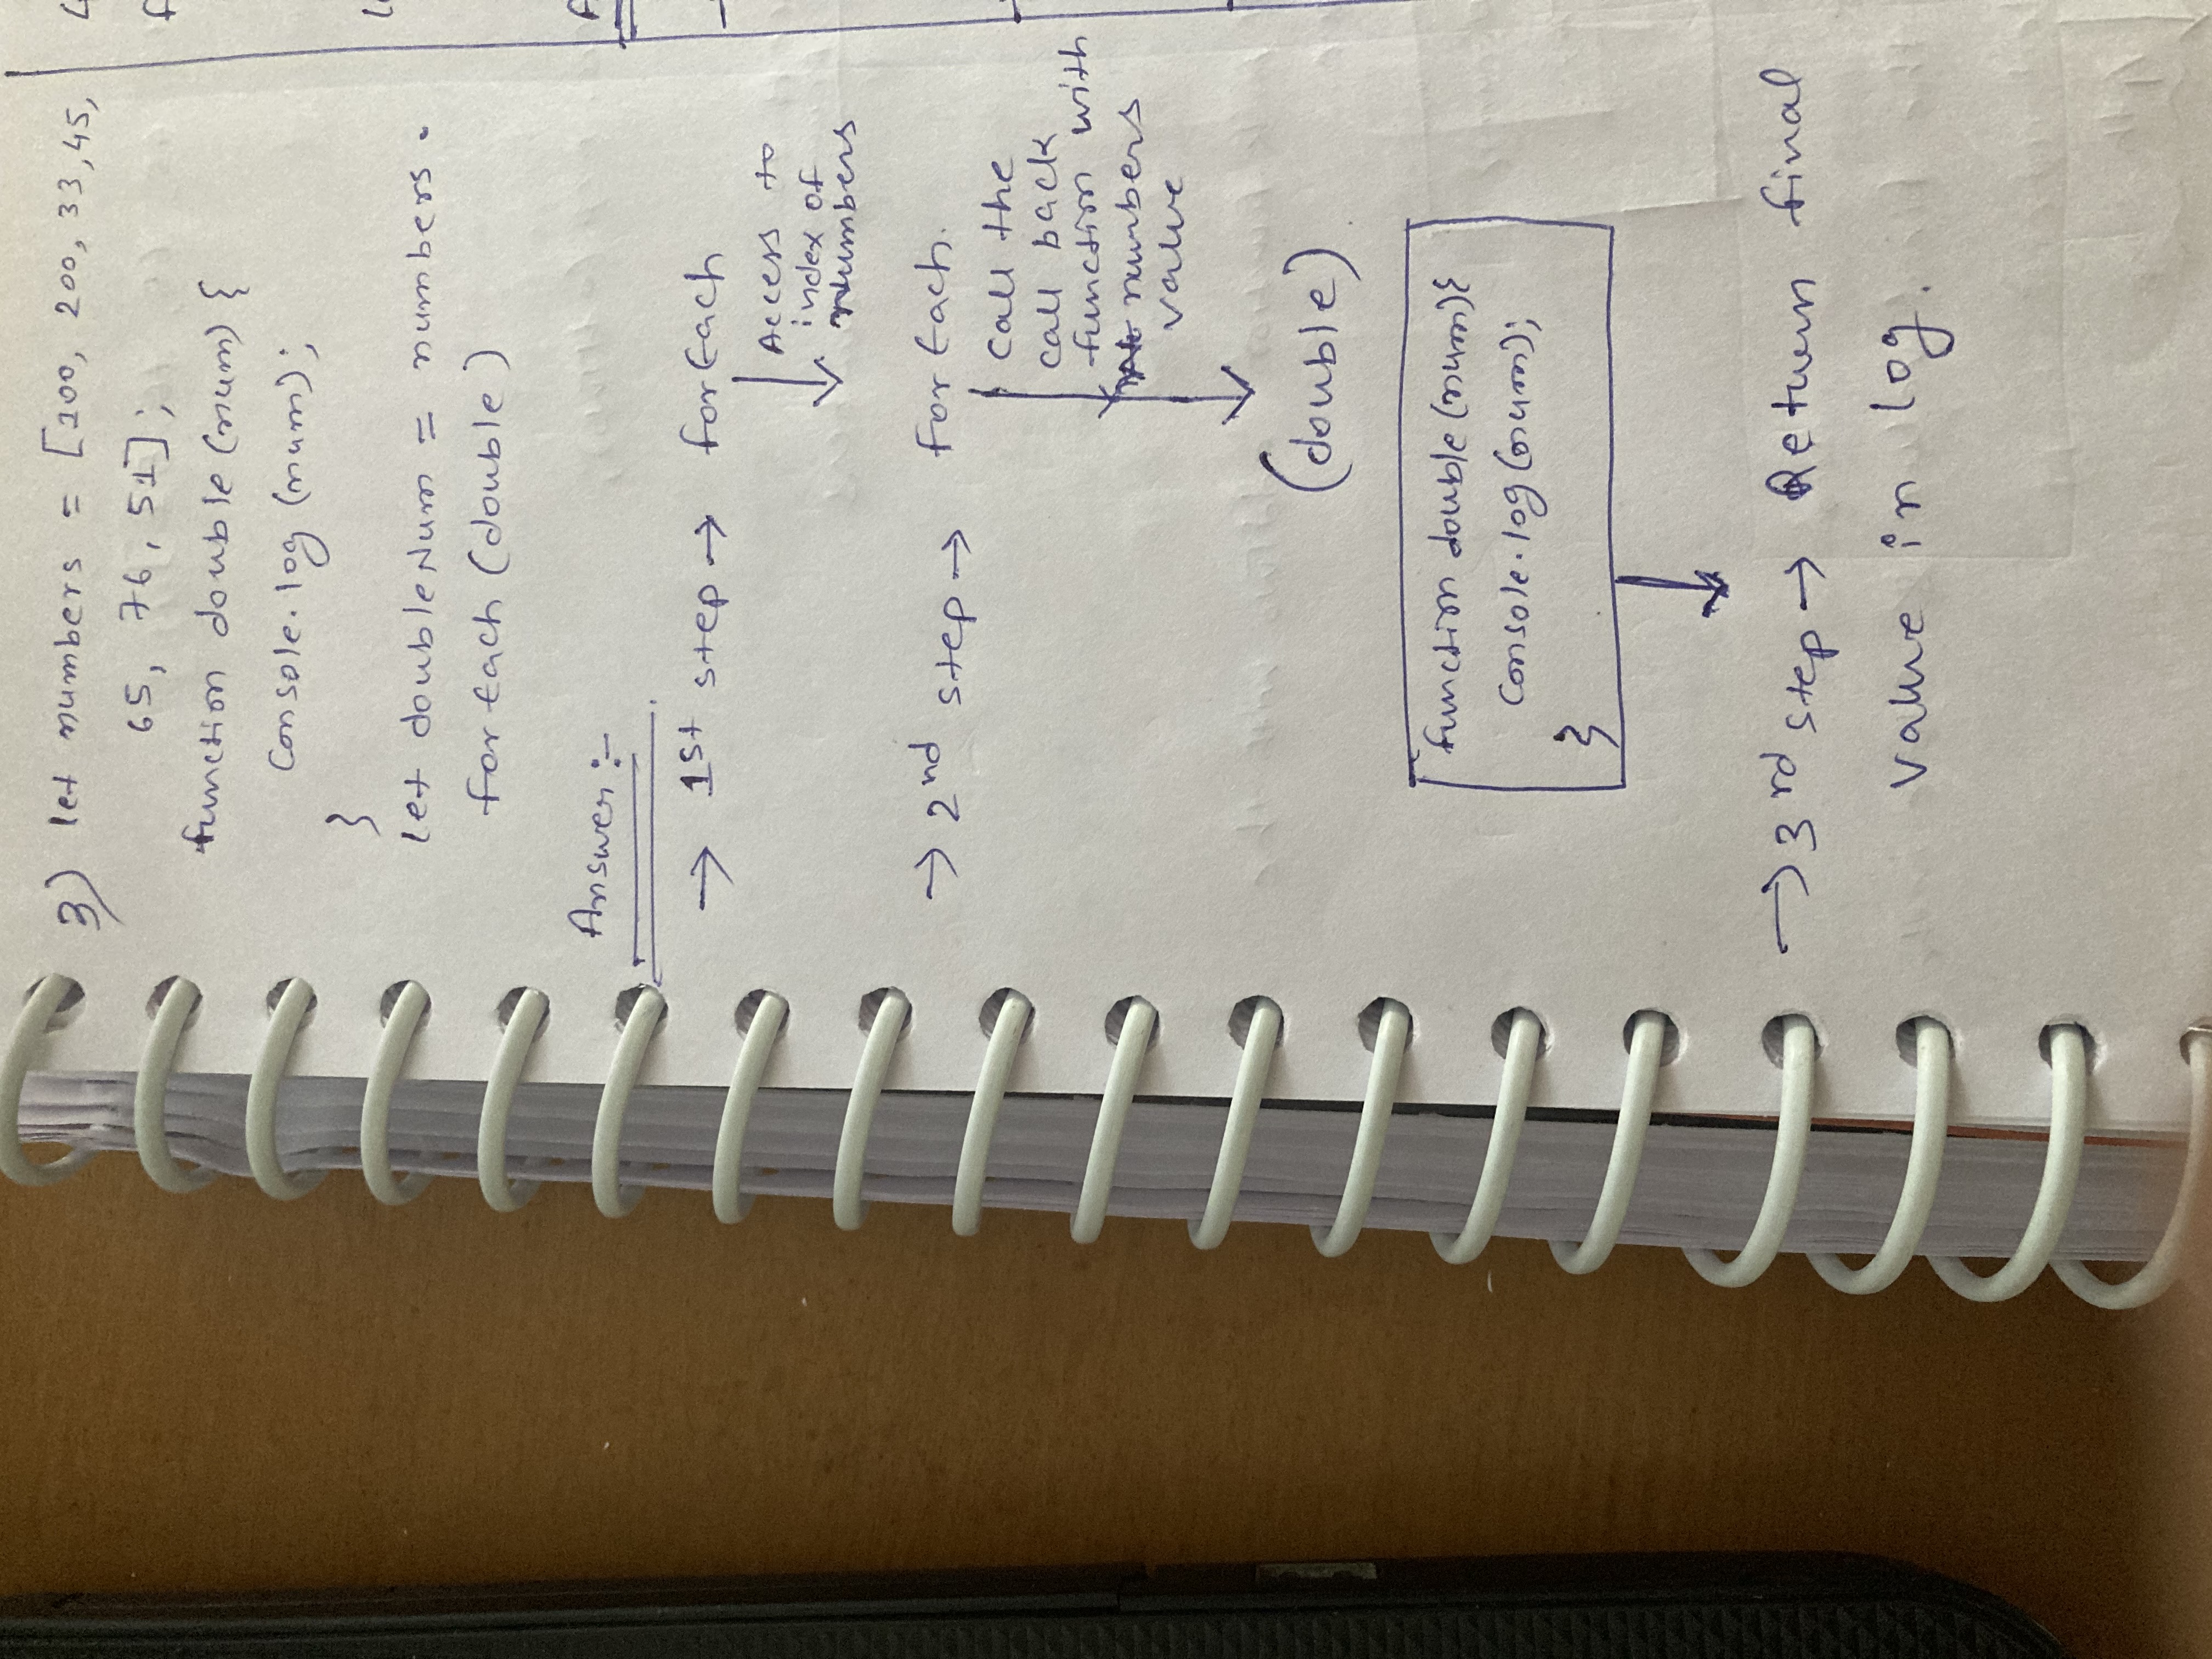 3) let numbers = [100, 200, 33, 45,
65, 76, 51];
function double (num) {
Console.log (num);
}
let doubleNum = numbers.
forEach (double)
Answer :-
→ 1st step → forEach
Access to
index of
Numbers
→ 2nd step → forEach.
Call the
call back
function with
numbers
value
(double)
function double (num) {
Console.log (num);
}
→ 3rd step → Return final
value in log.